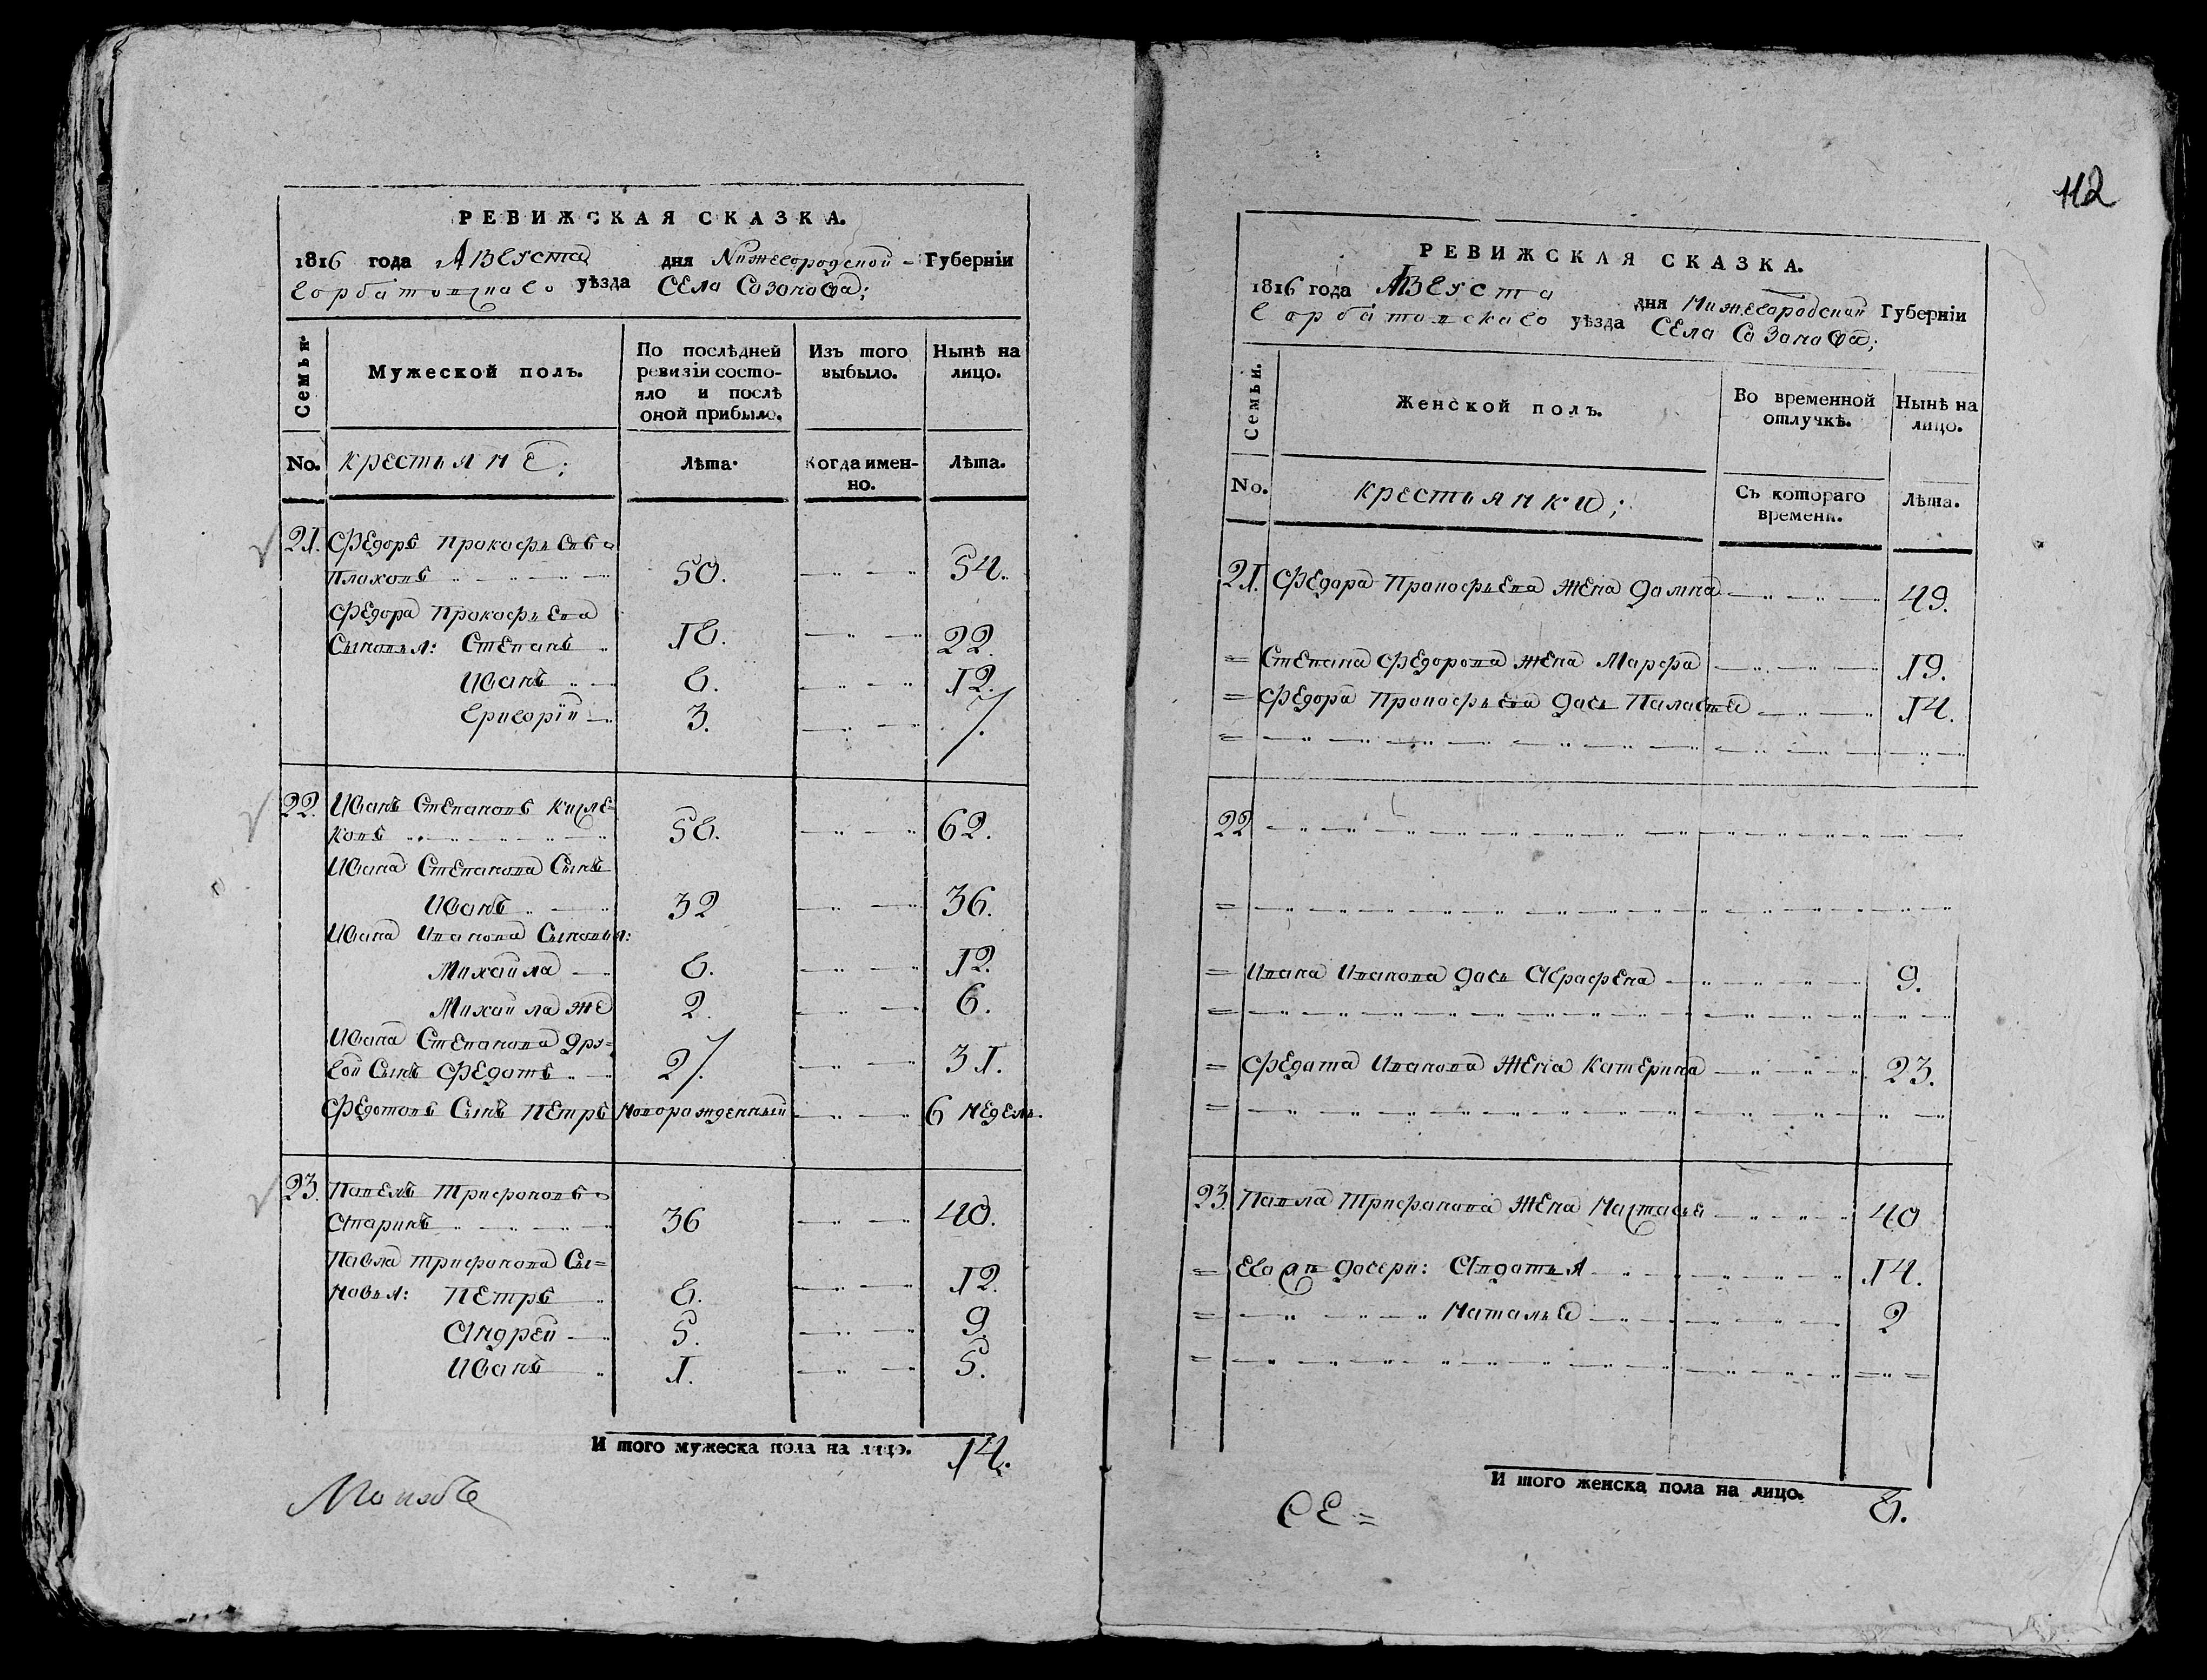 РЕВИЖСКАЯ СКАЗКА.
1816 года Августа дня Нижегородской Губерніи
Горбатовскаго уѣзда Села Сазонова;
Семьи. Мужеской полъ. По послѣдней ревизіи состояло и послѣ оной прибыло. Изъ того выбыло. Нынѣ на лицо.
No. крестьяне; Лѣта. Когда именно. Лѣта.
21. Федоръ Прокофьевъ
Плоховъ 50. 54.
Федора Прокофьева
Сыновья: Степанъ 18. 22.
Иванъ 8. 12.
Григорій 3. 7.
22. Иванъ Степановъ
58. 62.
Ивана Степанова Сынъ
Иванъ 32 36.
Ивана Иванова Сыновья:
Михайла 8. 12.
Михайла же 2. 6.
Ивана Степанова дру=
гой Сынъ Федотъ 27. 31.
Федотовъ Сынъ Петръ Новорожденный 6 недель.
23. Павелъ Трифоновъ
Старинъ 36 40.
Павла Трифонова Сы=
новья: Петръ 8. 12.
Андрей 5. 9.
Иванъ 1. 5.
И того мужеска пола на лицо. 14.
112
РЕВИЖСКАЯ СКАЗКА.
1816 года Августа дня Нижегородской Губерніи
Горбатовскаго уѣзда Села Сазонова;
Семьи. Женской полъ. Во временной отлучкѣ. Нынѣ на лицо.
No. крестьянки; Съ котораго времени. Лѣта.
21. Федора Прокофьева жена Домна 49.
= Степана Федорова жена Марфа 19.
= Федора Прокофьева дочь Паласея 14.
22
= Ивана Иванова дочь Аграфена 9.
= Федота Иванова жена Катерина 23.
23. Павла Трифонова жена Настасья 40
= Его дочери: Авдотья 14.
= Наталья 2
И того женска пола на лицо. 8.